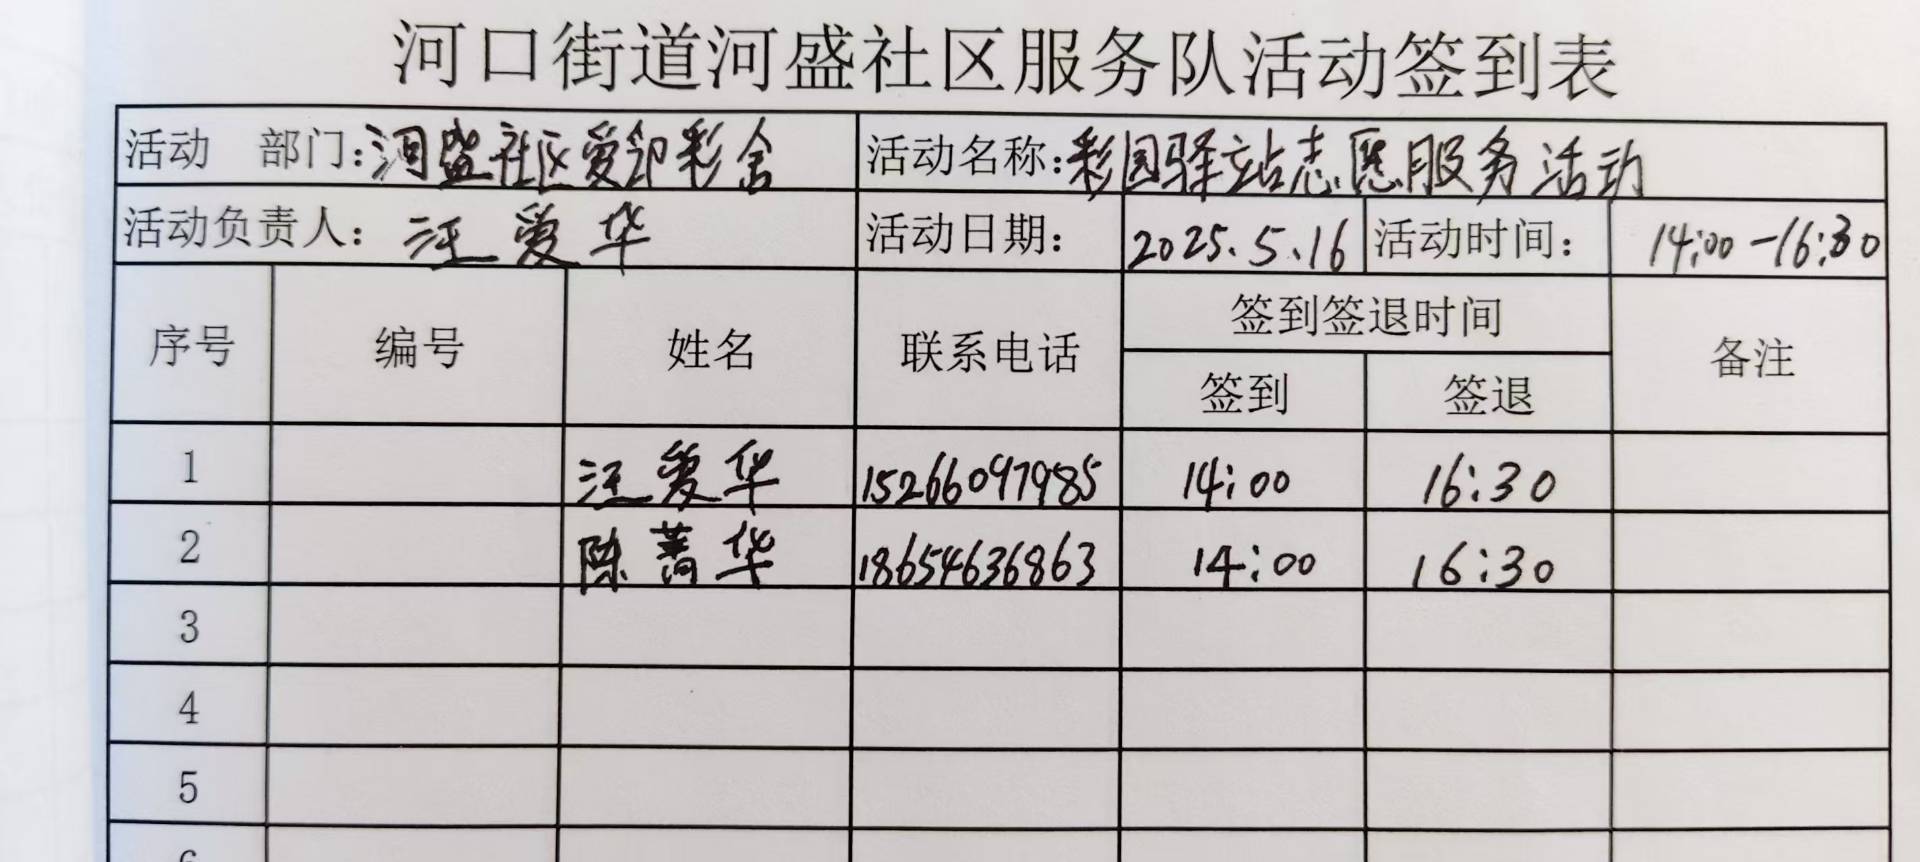 河口街道河盛社区服务队活动签到表
活动 部门:河盛社区爱卯彩舍 活动名称:彩园驿站志愿服务活动
活动负责人: 汪爱华 活动日期: 2025.5.16 活动时间: 14:00-16:30
序号 编号 姓名 联系电话 签到签退时间 备注
签到 签退
1 汪爱华 15266097985 14:00 16:30
2 陈菁华 18654636863 14:00 16:30
3
4
5
6